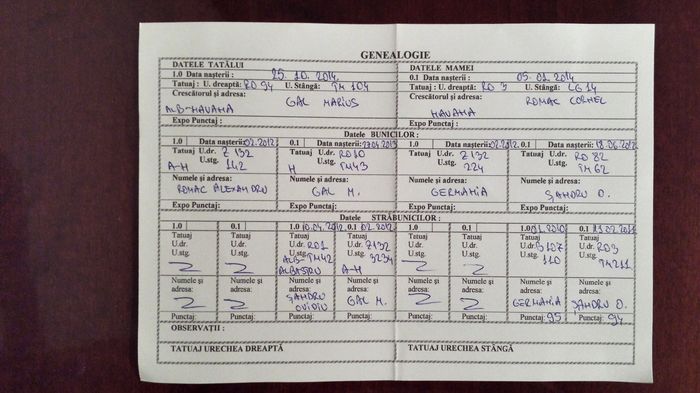 GENEALOGIE
DATELE TATĂLUI
1.0 Data nașterii : 25. 10. 2014.
Tatuaj : U. dreaptă: RO 94 U. Stângă: TM 104
Crescătorul și adresa: GAL MARIUS
ALB-HAVAHA
Expo Punctaj :
DATELE MAMEI
0.1 Data nașterii : 05. 01. 2014
Tatuaj : U. dreaptă: RO 3 U. Stângă: LG 14
Crescătorul și adresa: ROMAC CORNEL
HAVAMA
Expo Punctaj :
Datele BUNICILOR :
1.0 Data nașterii: 02.2012
Tatuaj U.dr. Z 132
U.stg. 142
A-H
Numele și adresa:
ROMAC ALEXANDRU
Expo Punctaj:
0.1 Data nașterii: 2013
Tatuaj U.dr. RO10
U.stg. TM43
H
Numele și adresa:
GAL M.
Expo Punctaj:
1.0 Data nașterii: 02.2012.
Tatuaj U.dr. Z132
U.stg. 224
Numele și adresa:
GERMANIA
Expo Punctaj:
0.1 Data nașterii: 18.06.2012
Tatuaj U.dr. RO 82
U.stg. TM 62
Numele și adresa:
ȘANDRU O.
Expo Punctaj:
Datele STRĂBUNICILOR :
1.0
Tatuaj
U.dr.
U.stg.
Numele și
adresa:
Punctaj:
0.1
Tatuaj
U.dr.
U.stg.
Numele și
adresa:
Punctaj:
1.0 10.04.2012
Tatuaj
U.dr. RO1
U.stg. TM42
ALB-
ALBASTRU
Numele și
adresa:
ȘANDRU
OVIDIU
Punctaj:
0.1 02.2012
Tatuaj
U.dr. Z132
U.stg. 3234
A-H
Numele și
adresa:
GAL M.
Punctaj:
1.0
Tatuaj
U.dr.
U.stg.
Numele și
adresa:
Punctaj:
0.1
Tatuaj
U.dr.
U.stg.
Numele și
adresa:
Punctaj:
1.0 01.2010
Tatuaj
U.dr. D107
U.stg. 110
Numele și
adresa:
GERMANIA
Punctaj: 95
0.1 11.02.2011
Tatuaj
U.dr. RO3
U.stg. TM211
Numele și
adresa:
ȘANDRU O.
Punctaj: 94
OBSERVAȚII :
TATUAJ URECHEA DREAPTĂ
TATUAJ URECHEA STÂNGĂ